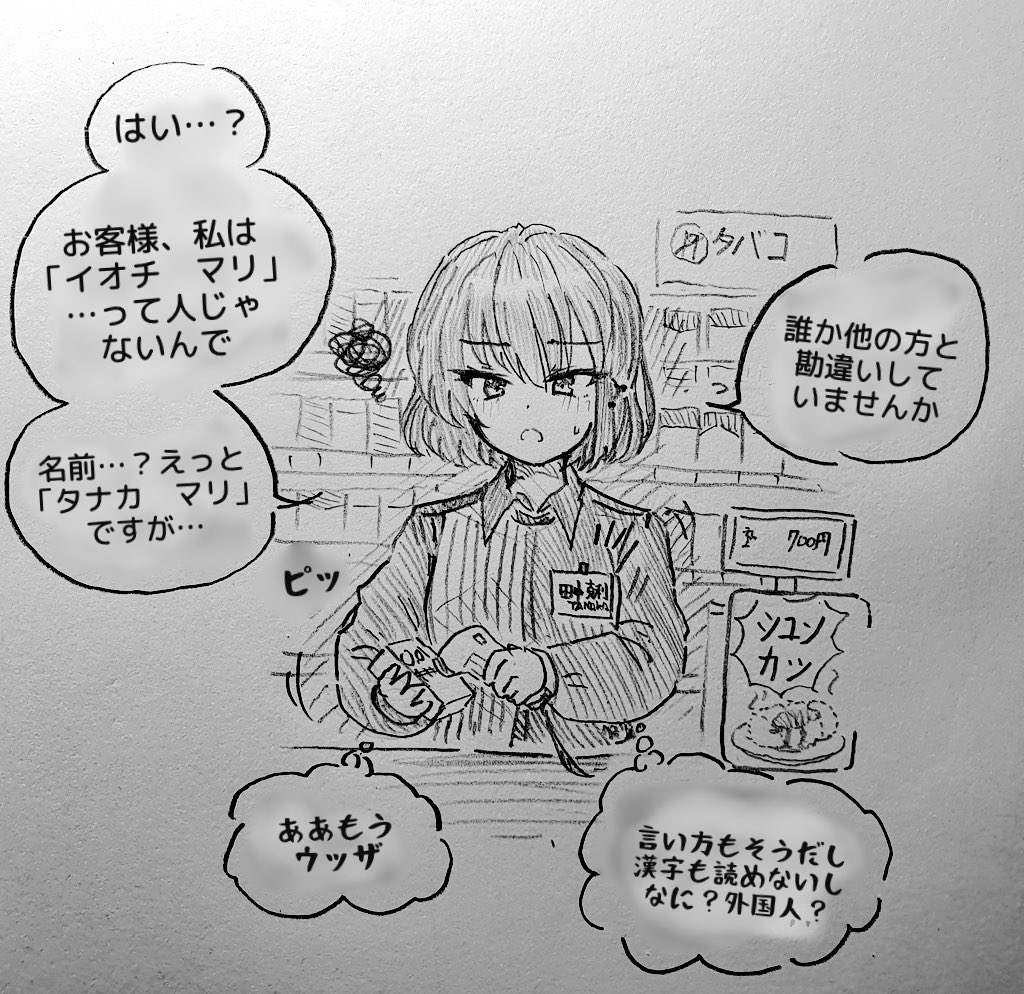 はい…？
お客様、私は
「イオチ　マリ」
…って人じゃ
ないんで
名前…？えっと
「タナカ　マリ」
ですが…
タバコ
誰か他の方と
勘違いして
いませんか
ピッ
700円
TANAKA
シユン
カツ
ああもう
ウッザ
言い方もそうだし
漢字も読めないし
なに？外国人？